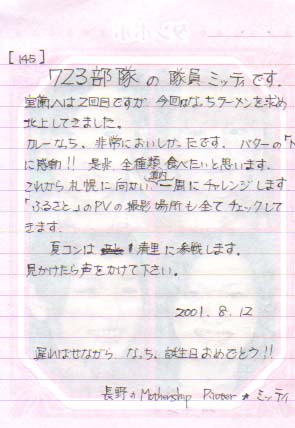 [145]
723部隊の隊員ミッティです。
室蘭へは2回目ですが 今回はなっちラーメンを求め
北上してきました。
カレーなっち、非常においしかったです。 バターの「ト
に感動!! 是非、全種類食べたいと思います。
これから札幌に向かい、道内一周にチャレンジします
「ふるさと」のPVの撮影場所も全てチェックして
きます。
夏コンは 清里に参戦します。
見かけたら声をかけて下さい。
2001. 8. 12
遅ればせながら、なっち、誕生日おめでとう!!
長野のMothership ★ミッティ